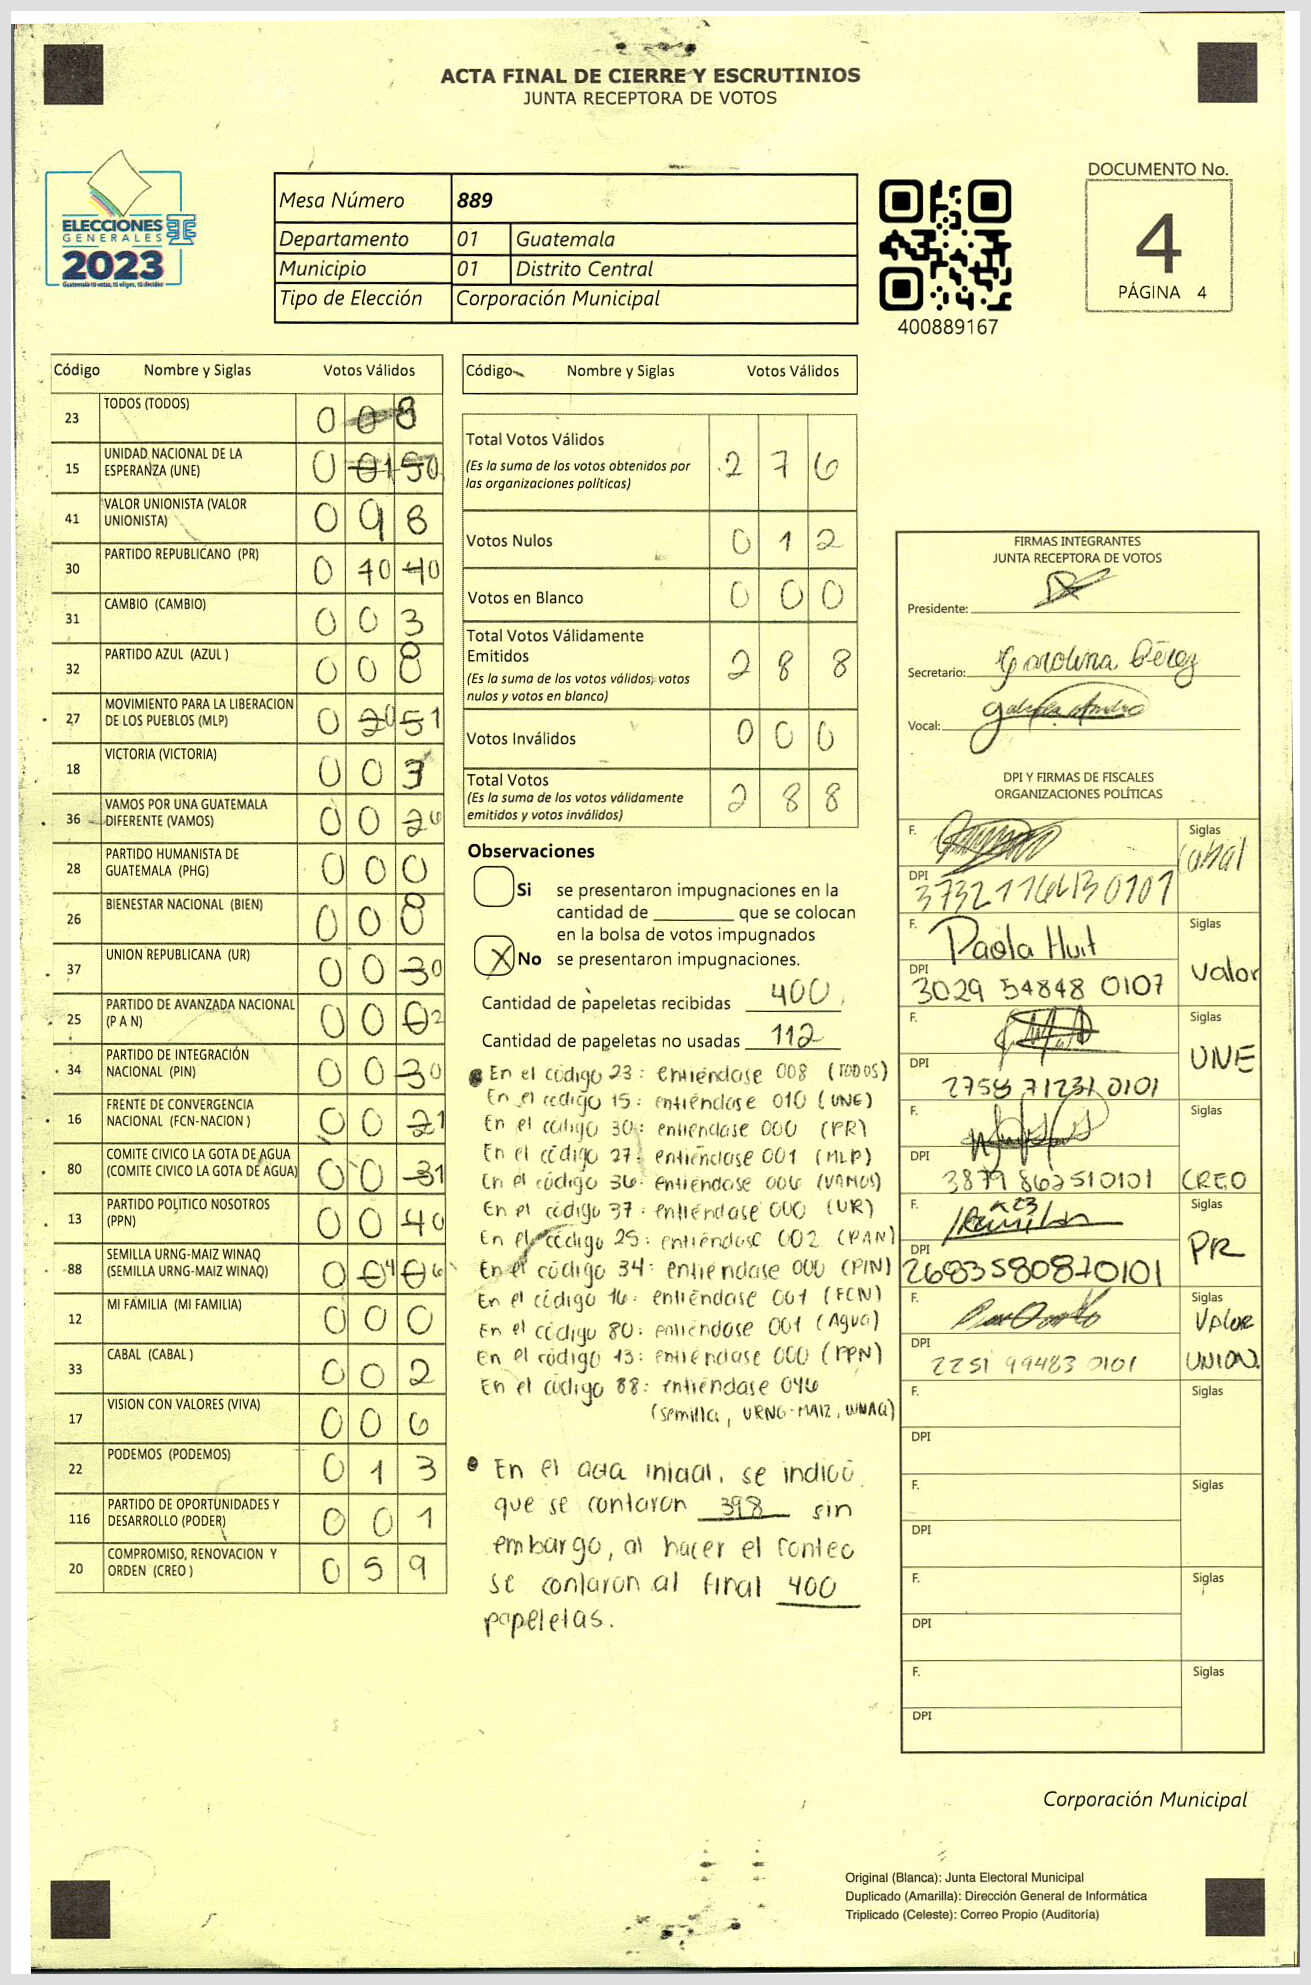 ACTA FINAL DE CIERRE Y ESCRUTINIOS
JUNTA RECEPTORA DE VOTOS
ELECCIONES
GENERALES
2023
Guatemala tú votas, tú eliges, tú decides
Mesa Número 889
Departamento 01 Guatemala
Municipio 01 Distrito Central
Tipo de Elección Corporación Municipal
400889167
DOCUMENTO No.
4
PÁGINA 4
Código Nombre y Siglas Votos Válidos
23 TODOS (TODOS) 0 0 8
15 UNIDAD NACIONAL DE LA ESPERANZA (UNE) 0 1 0
41 VALOR UNIONISTA (VALOR UNIONISTA) 0 9 8
30 PARTIDO REPUBLICANO (PR) 0 0 0
31 CAMBIO (CAMBIO) 0 0 3
32 PARTIDO AZUL (AZUL ) 0 0
27 MOVIMIENTO PARA LA LIBERACION DE LOS PUEBLOS (MLP) 0 0 1
18 VICTORIA (VICTORIA) 0 0 3
36 VAMOS POR UNA GUATEMALA DIFERENTE (VAMOS) 0 0 6
28 PARTIDO HUMANISTA DE GUATEMALA (PHG) 0 0 0
26 BIENESTAR NACIONAL (BIEN) 0 0
37 UNION REPUBLICANA (UR) 0 0 0
25 PARTIDO DE AVANZADA NACIONAL (P A N) 0 0 2
34 PARTIDO DE INTEGRACIÓN NACIONAL (PIN) 0 0 0
16 FRENTE DE CONVERGENCIA NACIONAL (FCN-NACION ) 0 0 1
80 COMITE CIVICO LA GOTA DE AGUA (COMITE CIVICO LA GOTA DE AGUA) 0 0 1
13 PARTIDO POLITICO NOSOTROS (PPN) 0 0 0
88 SEMILLA URNG-MAIZ WINAQ (SEMILLA URNG-MAIZ WINAQ) 0 4 6
12 MI FAMILIA (MI FAMILIA) 0 0 0
33 CABAL (CABAL ) 0 0 2
17 VISION CON VALORES (VIVA) 0 0 6
22 PODEMOS (PODEMOS) 0 1 3
116 PARTIDO DE OPORTUNIDADES Y DESARROLLO (PODER) 0 0 1
20 COMPROMISO, RENOVACION Y ORDEN (CREO ) 0 5 9
Código Nombre y Siglas Votos Válidos
Total Votos Válidos 2 7 6
(Es la suma de los votos obtenidos por
las organizaciones políticas)
Votos Nulos 0 1 2
Votos en Blanco 0 0 0
Total Votos Válidamente
Emitidos 2 8 8
(Es la suma de los votos válidos, votos
nulos y votos en blanco)
Votos Inválidos 0 0 0
Total Votos 2 8 8
(Es la suma de los votos válidamente
emitidos y votos inválidos)
Observaciones
Si se presentaron impugnaciones en la
cantidad de ________ que se colocan
en la bolsa de votos impugnados
X No se presentaron impugnaciones.
Cantidad de papeletas recibidas 400
Cantidad de papeletas no usadas 112
En el código 23: entiéndase 008 (TODOS)
En el código 15: entiéndase 010 (UNE)
En el código 30: entiéndase 000 (PR)
En el código 27: entiéndase 001 (MLP)
En el código 36: entiéndase 006 (VAMOS)
En el código 37: entiéndase 000 (UR)
En el código 25: entiéndase 002 (PAN)
En el código 34: entiéndase 000 (PIN)
En el código 16: entiéndase 001 (FCN)
En el código 80: entiéndase 001 (Agua)
En el código 13: entiéndase 000 (PPN)
En el código 88: entiéndase 046
(Semilla, URNG-MAIZ, WINAQ)
En el acta inicial, se indicó
que se contaron 398 sin
embargo, al hacer el conteo
se contaron al final 400
papeletas.
FIRMAS INTEGRANTES
JUNTA RECEPTORA DE VOTOS
Presidente:
Secretario: Carolina Pérez
Vocal:
DPI Y FIRMAS DE FISCALES
ORGANIZACIONES POLÍTICAS
F. Siglas Cabal
DPI
F. Paola Huit Siglas Valor
DPI 3029 54848 0107
F. Siglas UNE
DPI 2758 71231 0101
F. Siglas CREO
DPI 3879 862510101
F. Siglas PR
DPI 2683580870101
F. Siglas VALOR
DPI 2251 99483 0101 UNION.
F. Siglas
DPI
F. Siglas
DPI
F. Siglas
DPI
F. Siglas
DPI
Corporación Municipal
Original (Blanca): Junta Electoral Municipal
Duplicado (Amarilla): Dirección General de Informática
Triplicado (Celeste): Correo Propio (Auditoría)